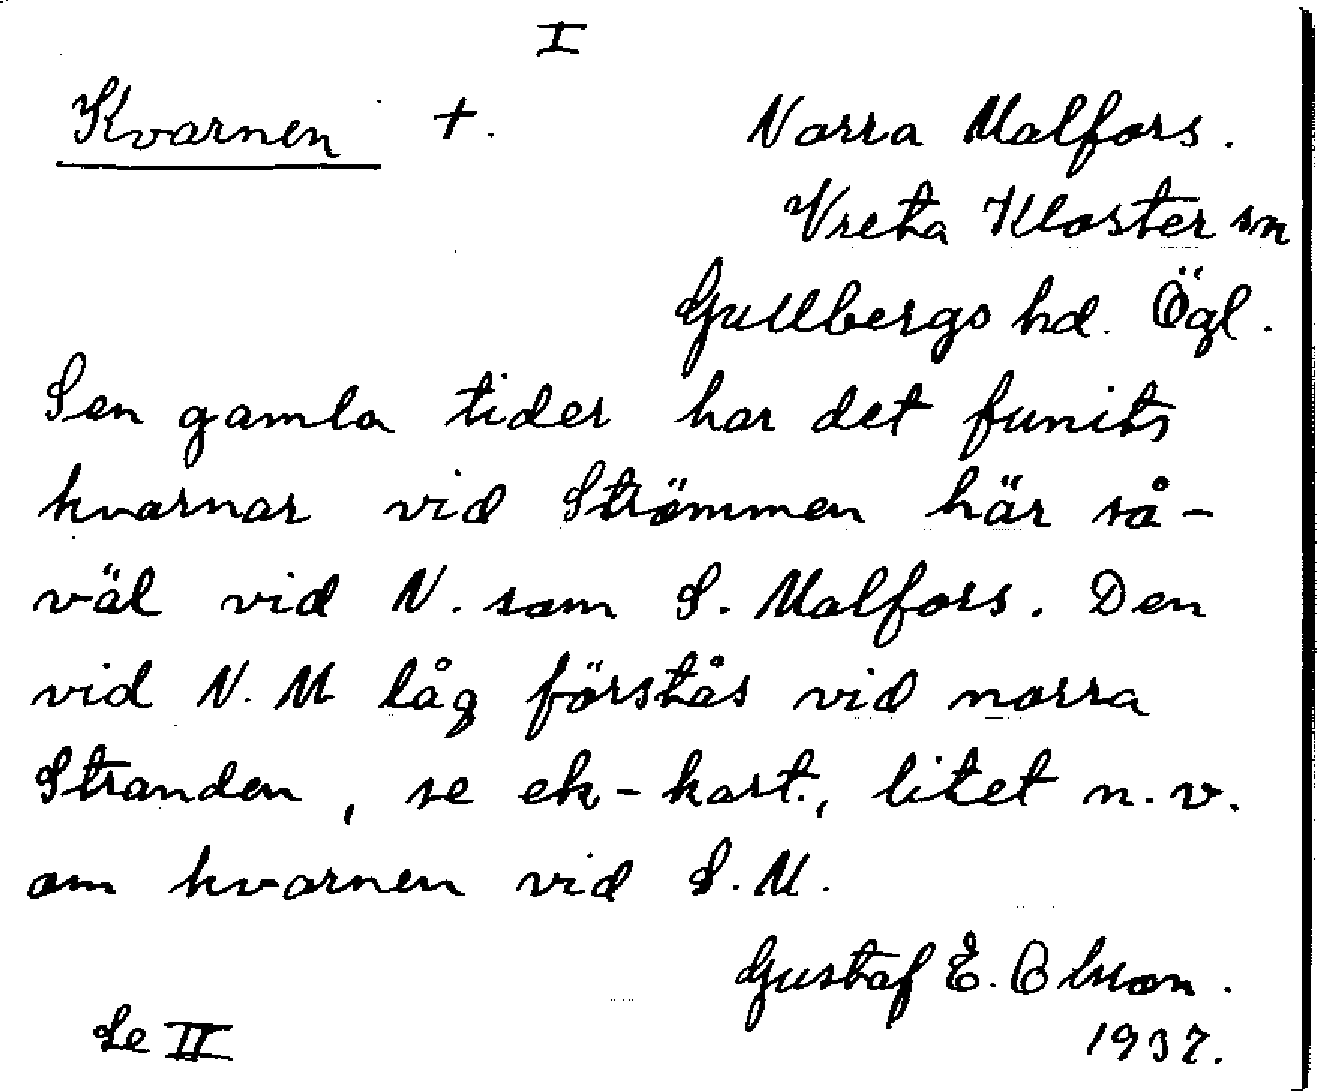 I
Kvarnen +. Norra Malfors.
Vreta Kloster sn
Gullbergs hd. Ögl.
Sen gamla tider har det funits
kvarnar vid Strömmen här så-
väl vid N. som S. Malfors. Den
vid N. M låg förstås vid norra
Stranden, se ek-kart., litet n.v.
om kvarnen vid S.M.
Gustaf E. Olsson.
Se II 1937.